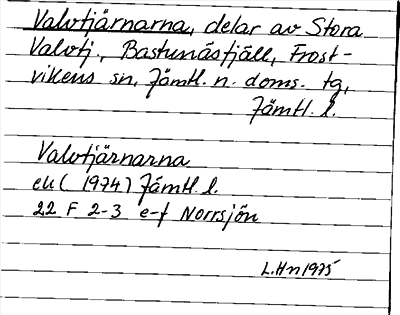 Valvtjärnarna, delar av Stora
Valvtj., Bastunäsfjäll, Frost-
vikens sn, Jämtl. n. doms. tg,
Jämtl. l.
Valvtjärnarna
ek ( 1974) Jämtl. l.
22 F 2-3 e-f Norrsjön
L.Hn 1975